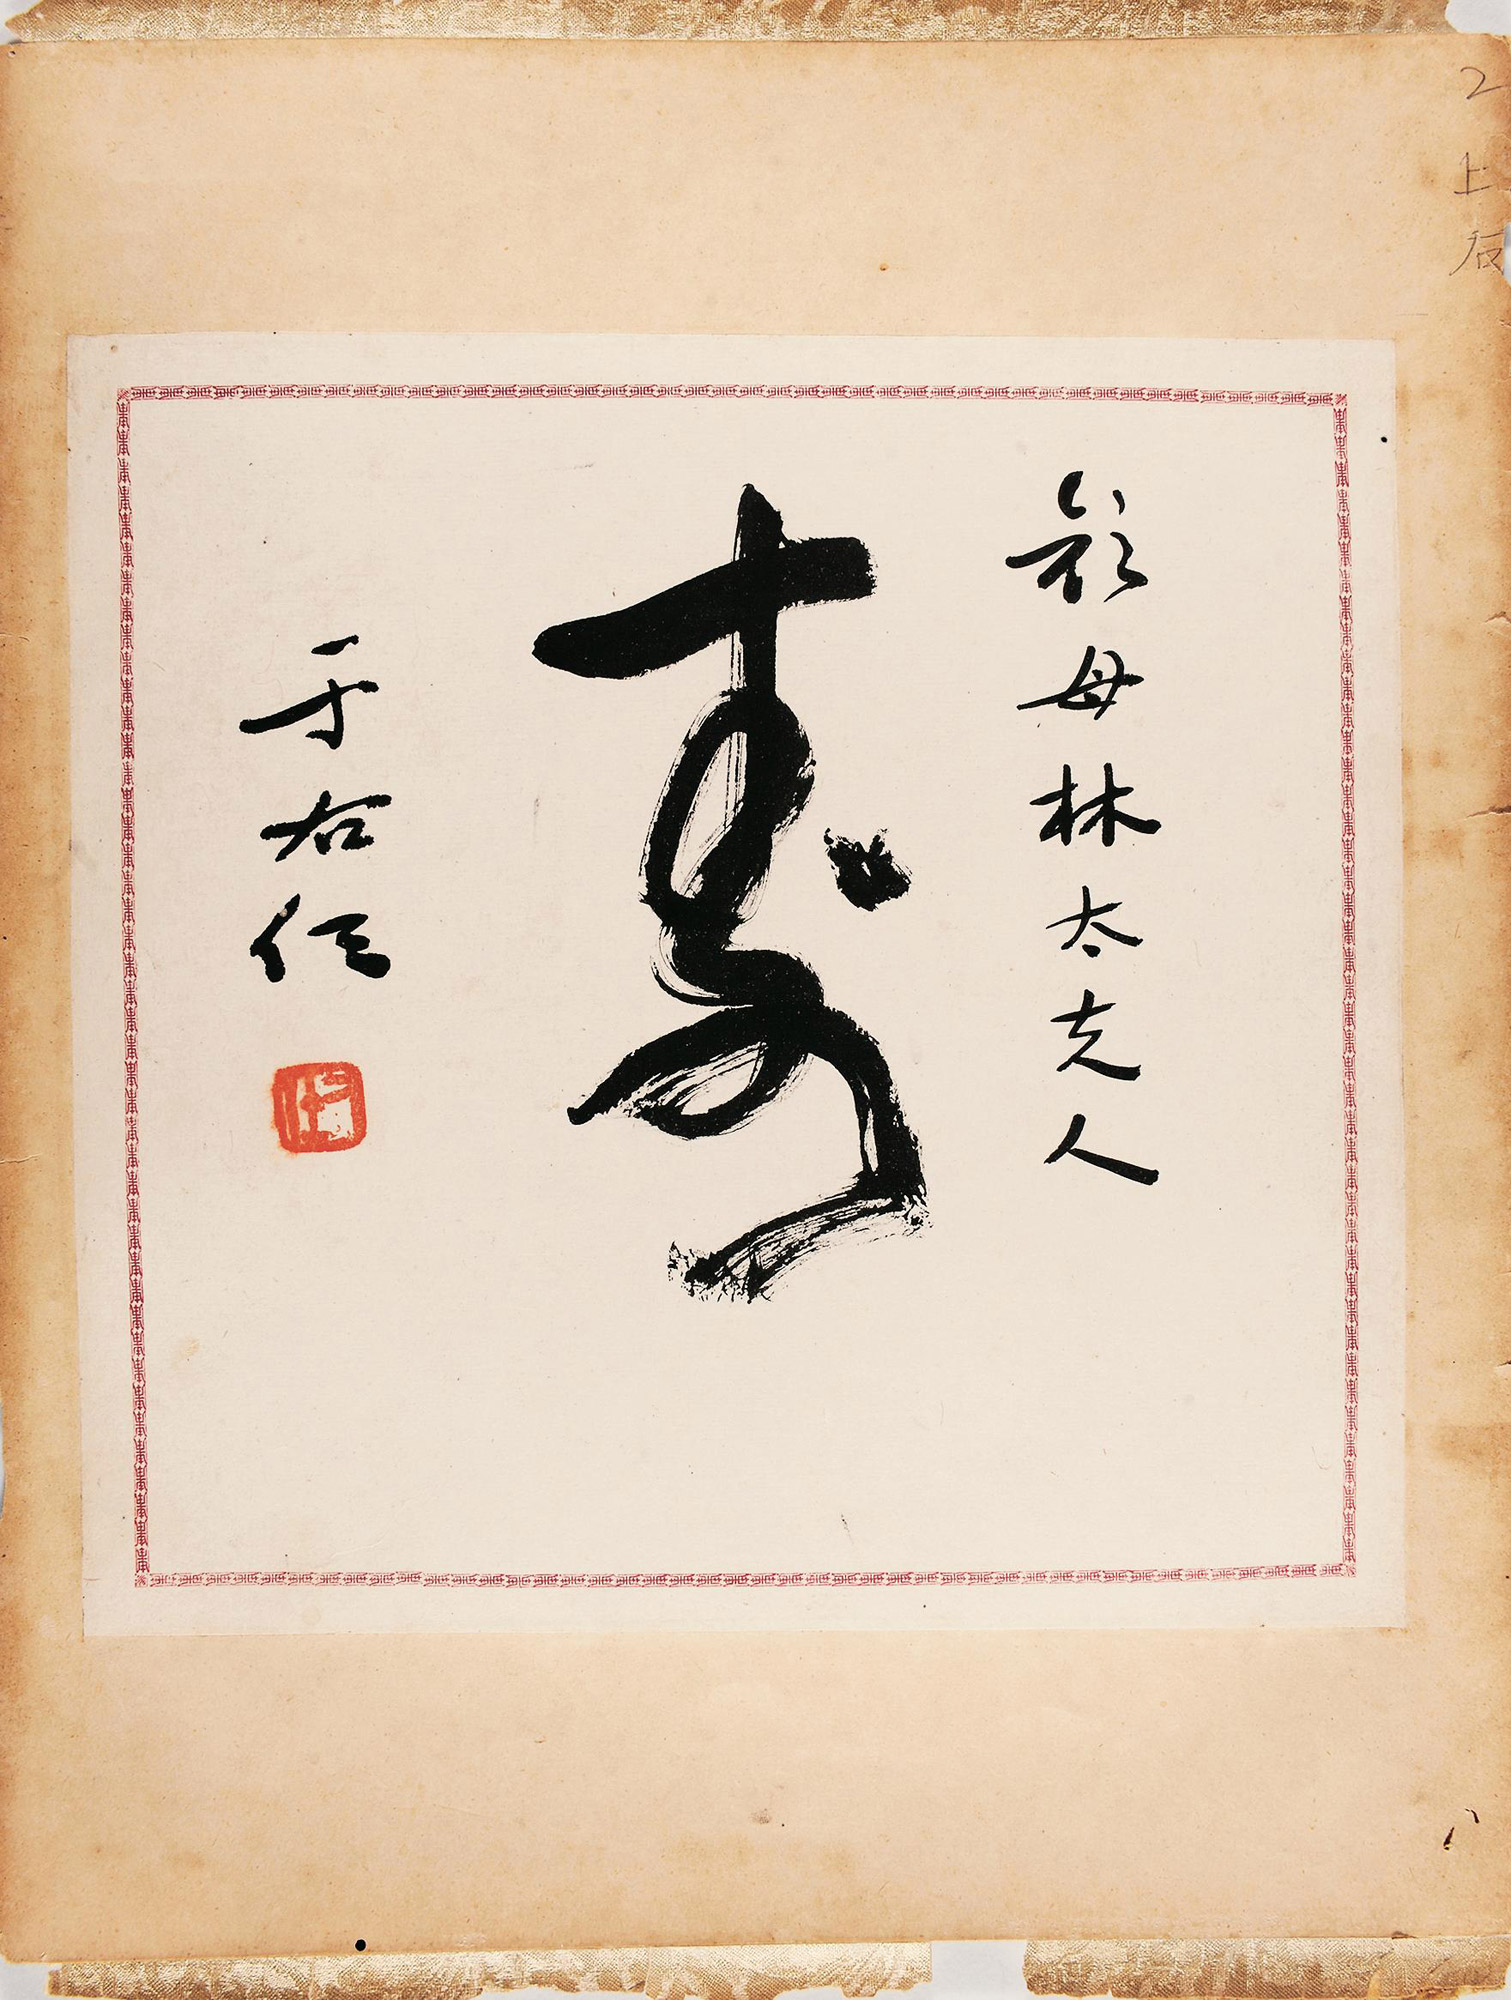 2上右
母林太夫人
壽
于右任